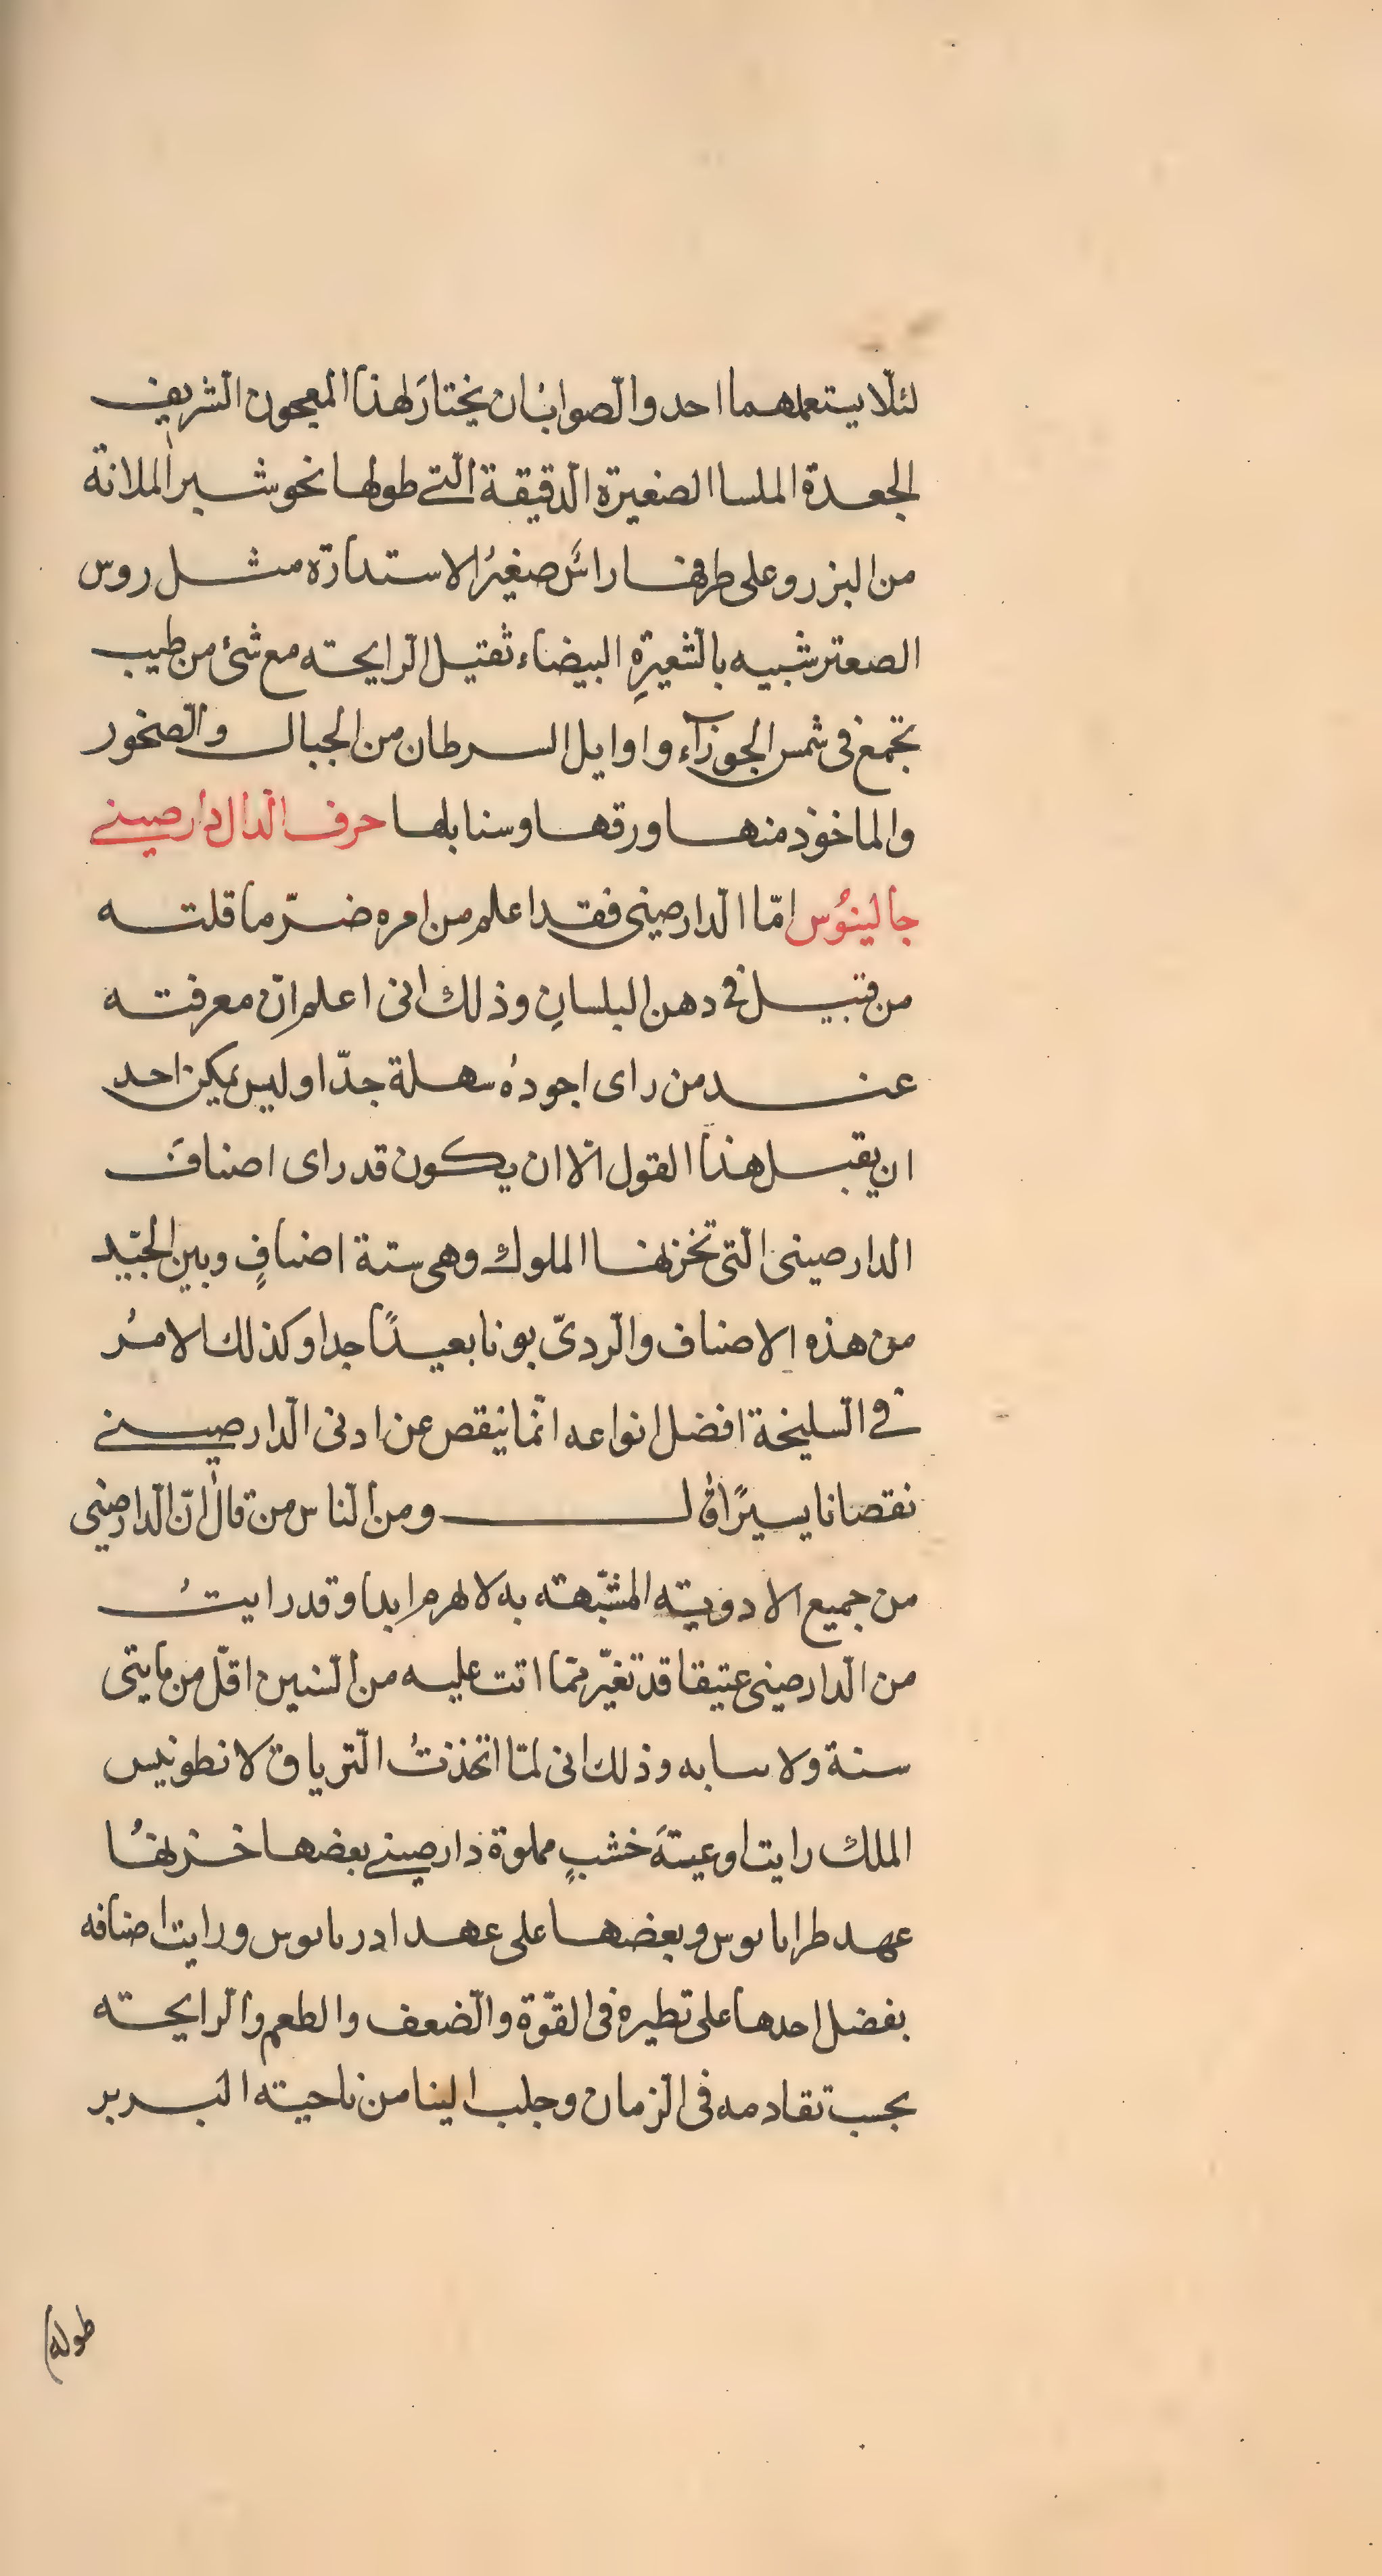 لئلّا يستعملهما احد والصواب ان يختار لهذا المعجون الشريف
الجعدة الملسا الصغيرة الدقيقة التى طولها نحو شبر الملانة
من البزر وعلى طرفها راسٌ صغيرُ الاستدارة مثل روس
الصعتر شبيه بالشعيرةِ البيضاء ثقيل الرايحته مع شئ من طيب
تجمع فى شمس الجوزآء واوايل السرطان من الجبال والصخور
والماخوذ منها ورقها وسنابلها حرف الدال دارصينى
جالينوُس امّا الدارصينى فقد اعلم من امره ضرّ ما قلته
من قبيل فى دهن البلسانِ وذلك انى اعلم انّ معرفته
عند من راى اجودهُ سهلة جدّا وليس يمكن احد
ان يقبل هذا القول الّا ان يكون قد راى اصنافَ
الدارصينى التى تخزنها الملوك وهى ستة اصنافٍ وبين الجيّد
من هذه الاصناف والردىّ بونا بعيدًا جدا وكذلك الامرُ
فى السليخة افضل انواعه انّما ينقص عن ادنى الدارصينى
نقصانا يسيرًا قال ومن الناس من قال انّ الدارصينى
من جميع الادويته المشبّهته به لا لهرم ابدا وقد رايتُ
من الدارصينى عتيقا قد تغيّر ممّا اتت عليه من السنين اقلّ من مايتى
سنة ولا سابه وذلك انى لمّا اتخذتُ الترياق لانطونيس
الملك رايت اوعيتَه خشبٍ مملوة دارصينى بعضها خزنها
عهد طراىاىوس وبعضها على عهد ادرىاىوس ورايت اصنافه
بفضل احدها على تطيره فى القوّة والضعف والطعم والرايحته
بحسب تقادمه فى الزمان وجلب الينا من ناحيته البربر
طوله